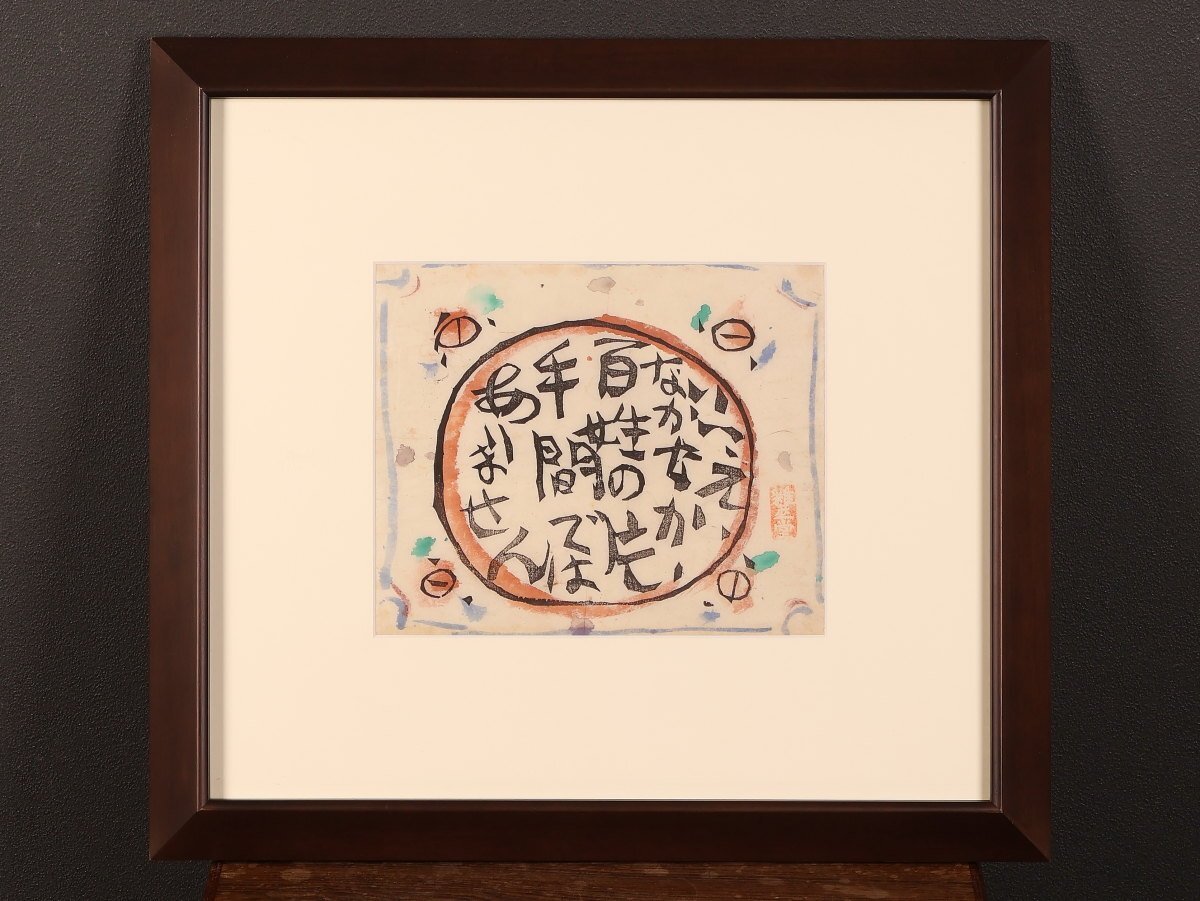 いいえ、
なかなか、
百姓の片
手間では
ありません